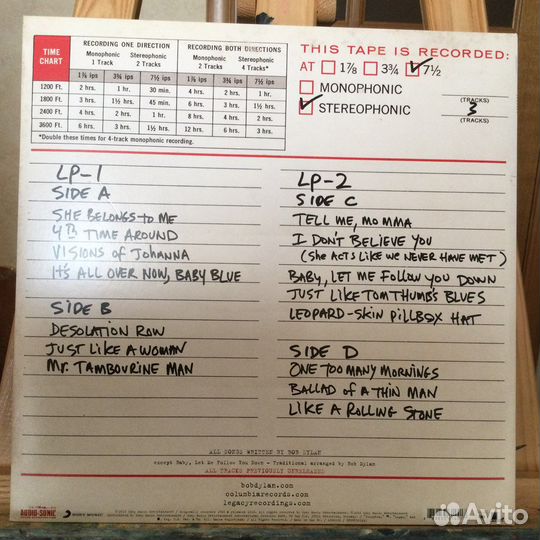 TIME CHART
RECORDING ONE DIRECTION
RECORDING BOTH DIRECTIONS
Monophonic 1 Track
Stereophonic 2 Tracks
Monophonic 2 Tracks
Stereophonic 4 Tracks*
1⅞ ips 3¾ ips 7½ ips 1⅞ ips 3¾ ips 7½ ips
1200 Ft. 2 hrs. 1 hr. 30 min. 4 hrs. 2 hrs. 1 hr.
1800 Ft. 3 hrs. 1½ hrs. 45 min. 6 hrs. 3 hrs. 1½ hrs.
2400 Ft. 4 hrs. 2 hrs. 1 hr. 8 hrs. 4 hrs. 2 hrs.
3600 Ft. 6 hrs. 3 hrs. 1½ hrs. 12 hrs. 6 hrs. 3 hrs.
*Double these times for 4-track monophonic recording.
THIS TAPE IS RECORDED:
AT 1⅞ 3¾ 7½
MONOPHONIC
(TRACKS)
STEREOPHONIC 3
(TRACKS)
LP-1
SIDE A
SHE BELONGS TO ME
4TH TIME AROUND
VISIONS OF JOHANNA
IT'S ALL OVER NOW, BABY BLUE
SIDE B
DESOLATION ROW
JUST LIKE A WOMAN
MR. TAMBOURINE MAN
LP-2
SIDE C
TELL ME, MOMMA
I DON'T BELIEVE YOU
(SHE ACTS LIKE WE NEVER HAVE MET)
BABY, LET ME FOLLOW YOU DOWN
JUST LIKE TOM THUMB'S BLUES
LEOPARD-SKIN PILLBOX HAT
SIDE D
ONE TOO MANY MORNINGS
BALLAD OF A THIN MAN
LIKE A ROLLING STONE
ALL SONGS WRITTEN BY BOB DYLAN
except Baby, Let Me Follow You Down - Traditional arranged by Bob Dylan
ALL TRACKS PREVIOUSLY UNRELEASED
bobdylan.com
columbiarecords.com
legacyrecordings.com
AUDIO-SONIC
SONY MUSIC
Avito